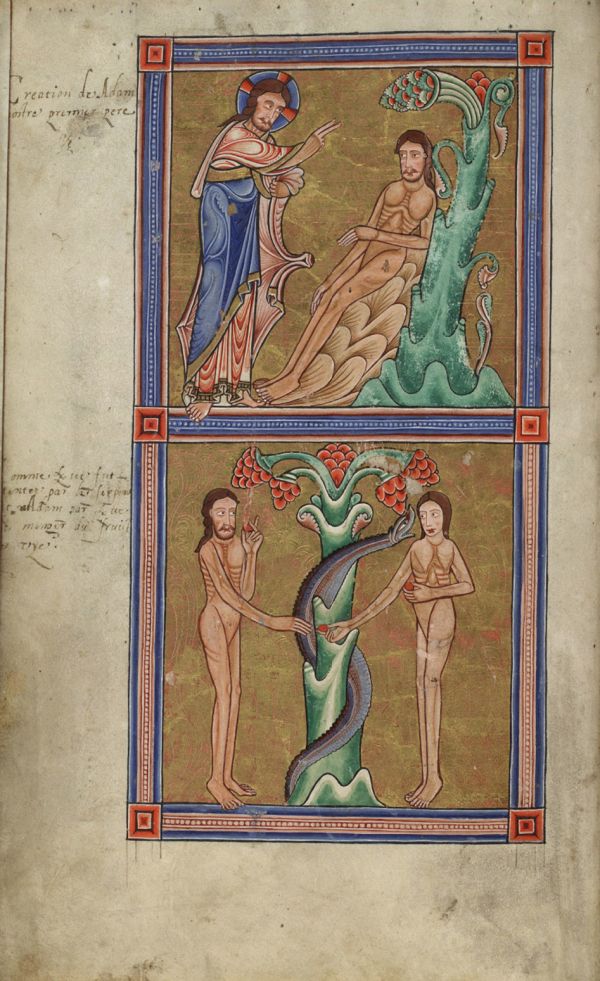 Creation de Adam
nostre premier pere
omme Eve fut
tentee par le serpent
Adam par Eve
menger du fruit